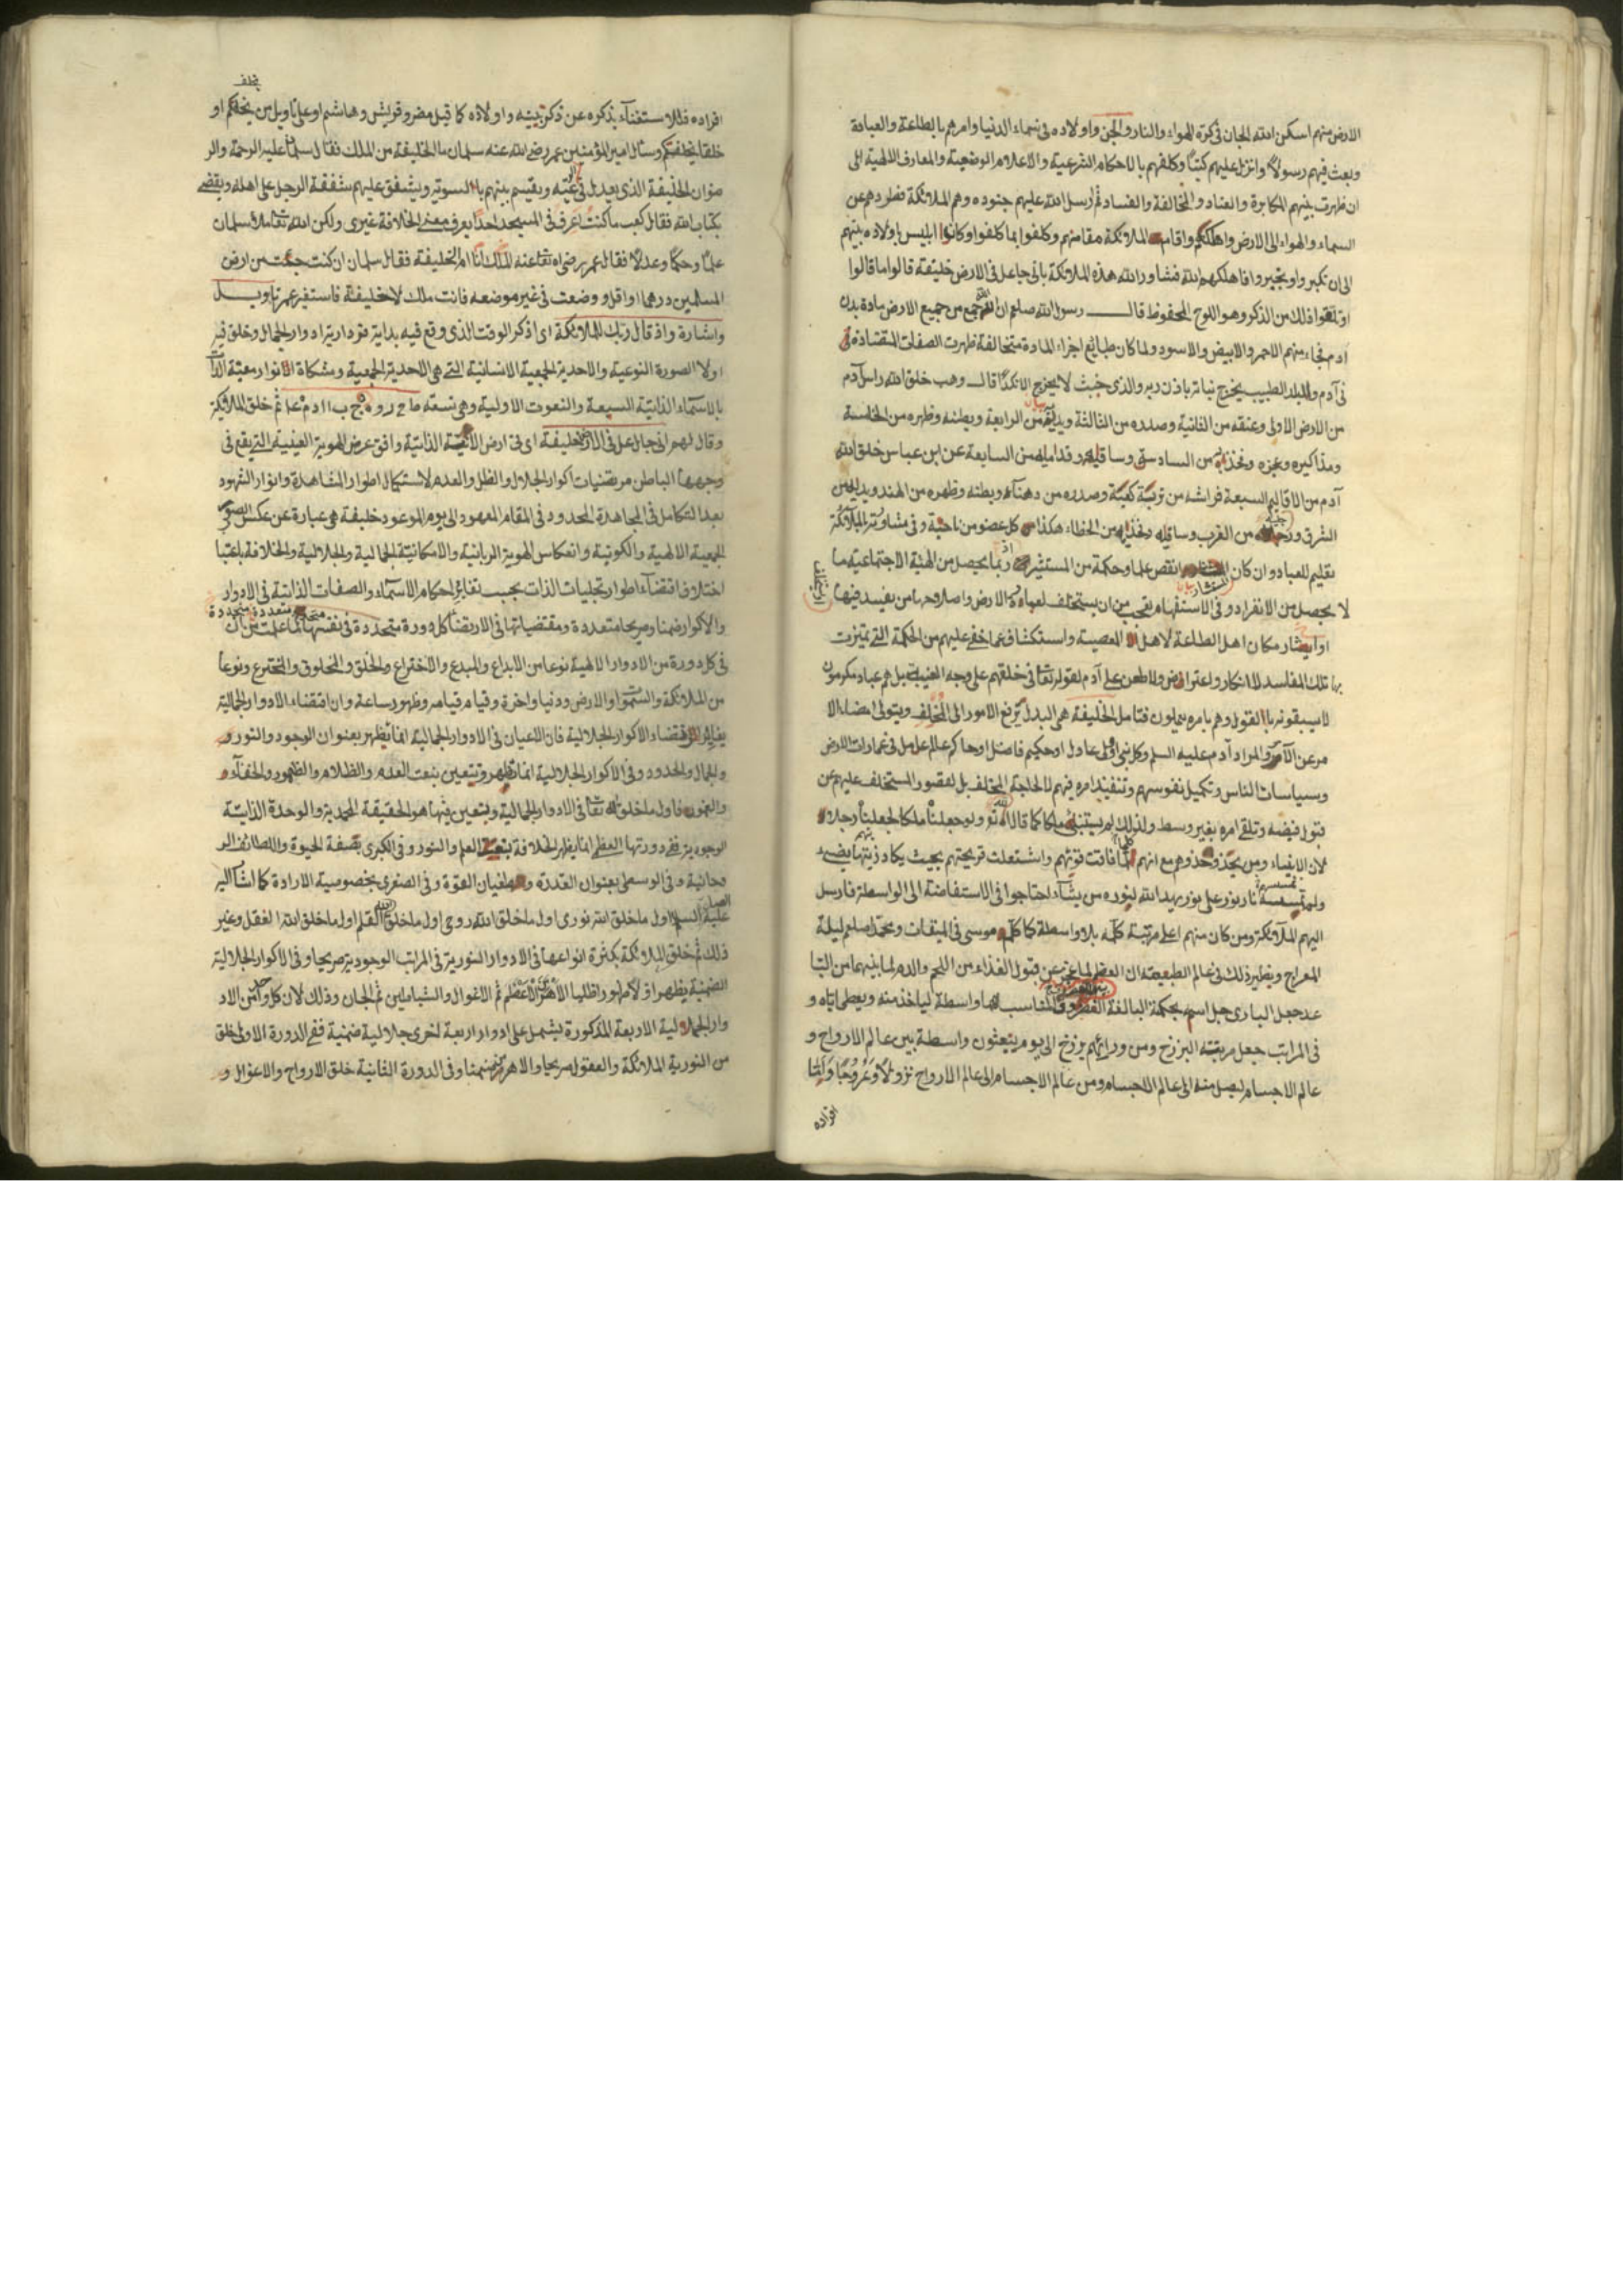 الارض منهم اسكن الله الجان فى كرة الهواء والنار والجن واولاده فى سماء الدنيا وامرهم بالطاعة والعبادة
وبعث فيهم رسولا وانزل عليهم كتبا وكلفهم بالاحكام الشرعية والاعلام الوضعية والمعارف الالهية الى
ان ظهرت بينهم المكابرة والعناد والمخالفة والفساد ثم ارسل الله عليهم جنوده وهم الملائكة فطردهم عن
السماء والهواء الى الارض واهلكهم واقام الملائكة مقامهم وكلفوا بما كلفوا وكانوا ابليس واولاده بينهم
الى ان تكبروا وتجبروا فاهلكهم الله فشاور الله هذه الملائكة بانى جاعل فى الارض خليفة قالوا ما قالوا
او تلقوا ذلك من الذكر وهو اللوح المحفوظ قال رسول الله صلعم ان الله جمع من جميع الارض مادة بدن
آدم فجاء منهم الاحمر والابيض والاسود ولما كان طبائع اجزاء المادة متخالفة ظهرت الصفات المتضادة
فى آدم والبلد الطيب يخرج نباته باذن ربه والذى خبث لا يخرج الا نكدا قال وهب خلق الله راس آدم
من الارض الاولى وعنقه من الثانية وصدره من الثالثة ويديه من الرابعة وبطنه وظهره من الخامسة
ومذاكيره وعجزه وفخذيه من السادسة وساقيه وقدميه من السابعة عن ابن عباس خلق الله
آدم من الاقاليم السبعة فراسه من تربة كعبة وصدره من دهناء وبطنه وظهره من الهند ويديه من
الشرق ورجليه من الغرب وساقيه وفخذيه من الخطاء هكذا كل عضو من ناحية وفى مشاورته الملائكة
تعليم للعباد وان كان المستشار انقص علما وحكمة من المستشير اذ ربما يحصل من الهيئة الاجتماعية ما
لا يحصل من الانفراد وفى الاستفهام تعجب من ان يستخلف لعمارة الارض واصلاحها من يفسد فيها
او استيشار مكان اهل الطاعة لاهل المعصية واستكشاف عما خفى عليهم من الحكمة التى تميزت
بها تلك المفاسد لا انكار واعتراض ولا طعن على آدم لقوله تعالى فى خلقهم على وجه الغيبة بل هم عباد مكرمون
لا يسبقونه بالقول وهم بامره يعملون فتامل الخليفة هى البدل يرفع الامور الى المخلف ويتولى امضاء الا
مر عن الآمر والمراد آدم عليه السلم وكل نبى وكل عادل او حكيم فاضل او حاكم عالم عامل فى عمارات الارض
وسياسات الناس وتكميل نفوسهم وتنفيذ امره فيهم لا لحاجة المخلف بل لقصور المستخلف عليهم عن
قبول فيضه وتلقى امره بغير وسط ولذلك لم يستنبئ ملكا كما قال الله تع ولو جعلناه ملكا لجعلناه رجلا
لان الانبياء ومن يحذو حذوهم مع انهم لما فاقت قوتهم واشتعلت قريحتهم بحيث يكاد زيتها يضئ
ولو لم تمسسه نار نور على نور يهدى الله لنوره من يشاء احتاجوا فى الاستفاضة الى الواسطة فارسل
اليهم الملائكة ومن كان منهم اعلى مرتبة كلمه بلا واسطة كما كلم موسى فى الميقات ومحمدا صلعم ليلة
المعراج ونظير ذلك فى عالم الطبيعة ان العظم لما عجز عن قبول الغذاء من اللحم والدم لما بينهما من التبا
عد جعل البارى جل اسمه بحكمة البالغة الغضروف المناسب لهما واسطة لياخذ منه ويعطى اياه و
فى المراتب جعل مرتبة البرزخ ومن ورائهم برزخ الى يوم يبعثون واسطة بين عالم الارواح و
عالم الاجسام ليصل منه الى عالم الاجسام ومن عالم الاجسام الى عالم الارواح نزولا وعروجا
افراده
افراده فللاستغناء بذكره عن ذكر بنيه واولاده كما قيل مضر وقريش وهاشم او على تاويل من يخلفكم او
خلقا يخلفكم وسئل امير المؤمنين عمر رضى الله عنه سلمان ما الخليفة من الملك فقال سلمان عليه الرحمة والر
ضوان الخليفة الذى يعدل فى رعيته ويقسم بينهم بالسوية ويشفق عليهم شفقة الرجل على اهله ويقضى
بكتاب الله فقال كعب ما كنت اعرف فى المسجد احدا يعرف معنى الخلافة غيرى ولكن الله تعالى ملأ سلمان
علما وحكما وعدلا فقال عمر رضى الله تعالى عنه الملك انا ام الخليفة فقال سلمان ان كنت جمعت من ارض
المسلمين درهما او اقل ووضعت فى غير موضعه فانت ملك لا خليفة فاستغفر عمر تاويل
واشارة واذ قال ربك للملائكة اى اذكر الوقت الذى وقع فيه بداية ادوار الجمال وخلق فيه
اولا الصورة النوعية والاحدية الجمعية الانسانية التى هى الاحدية الجمعية ومشكاة الانوار
بالاسماء الذاتية السبعة والنعوت الاولية وهى تسعة ثم خلق الملائكة
وقال لهم انى جاعل فى الارض خليفة اى فى ارض الذاتية وافق عرض الهوية الغيبية التى يقع فى
وجهها الباطن مرتضيات اكوار الجلال والظل والعدم لاستكمال اطوار المشاهدة وانوار الشهود
بعد التكامل فى المجاهدة المحدود فى المقام المعهود الى يوم الموعود خليفة هى عبارة عن عكس الصور
الجمعية الالهية والكونية وانعكاس الهوية الربانية والامكانية الجمالية والجلالية والخلافة باعتبا
اختلاف اقتضاء اطوار تجليات الذات بحسب تغاير احكام الاسماء والصفات الذاتية فى الادوار
والاكوار ضمنا وصريحا متعددة ومقتضياتها فى الارتضا كل دورة متجددة فى نفسها لما علمت من ان
فى كل دورة من الادوار الالهية نوعا من الابداع والمبدع والاختراع والخلق والمخلوق والمخترع ونوعا
من الملائكة والسموات والارض ودنيا واخرة وقيام قيامه وظهور ساعة وان اقتضاء الادوار الجمالية
يغاير اقتضاء الاكوار الجلالية فان الاعيان فى الادوار الجمالية انما تظهر بعنوان الوجود والنور و
والجمال والحدود وفى الاكوار الجلالية انما تظهر وتتعين بنعت العدم والظلام والخفاء و
فاول ما خلق الله تعالى فى الادوار الجمالية وتعين فيها هو الحقيقة المحمدية والوحدة الذاتية
الوجودية ففى دورتها العظمى انما يظهر الخلافة بنعت العلم والنور وفى الكبرى بصفة الحيوة واللطائف الر
وحانية وفى الوسطى بعنوان القدرة وطغيان القوة وفى الصغرى بخصوصية الارادة كما اشار اليه
عليه السلم اول ما خلق الله نورى اول ما خلق الله روحى اول ما خلق الله القلم اول ما خلق الله العقل وغير
ذلك ثم خلق الملائكة بكثرة انواعها فى الادوار النورية فى المراتب الوجودية صريحا وفى الاكوار الجلالية
الضمنية يظهر ثم الاغوال والشياطين ثم الجان وذلك لان كل واحد من الاد
وار الجمالية الاربعة المذكورة يشمل على ادوار اربعة اخرى جلالية ضمنية ففى الدورة الاولى خلق
من النورية الملائكة والعقول صريحا والاهرمن ضمنا وفى الدورة الثانية خلق الارواح والاغوال و